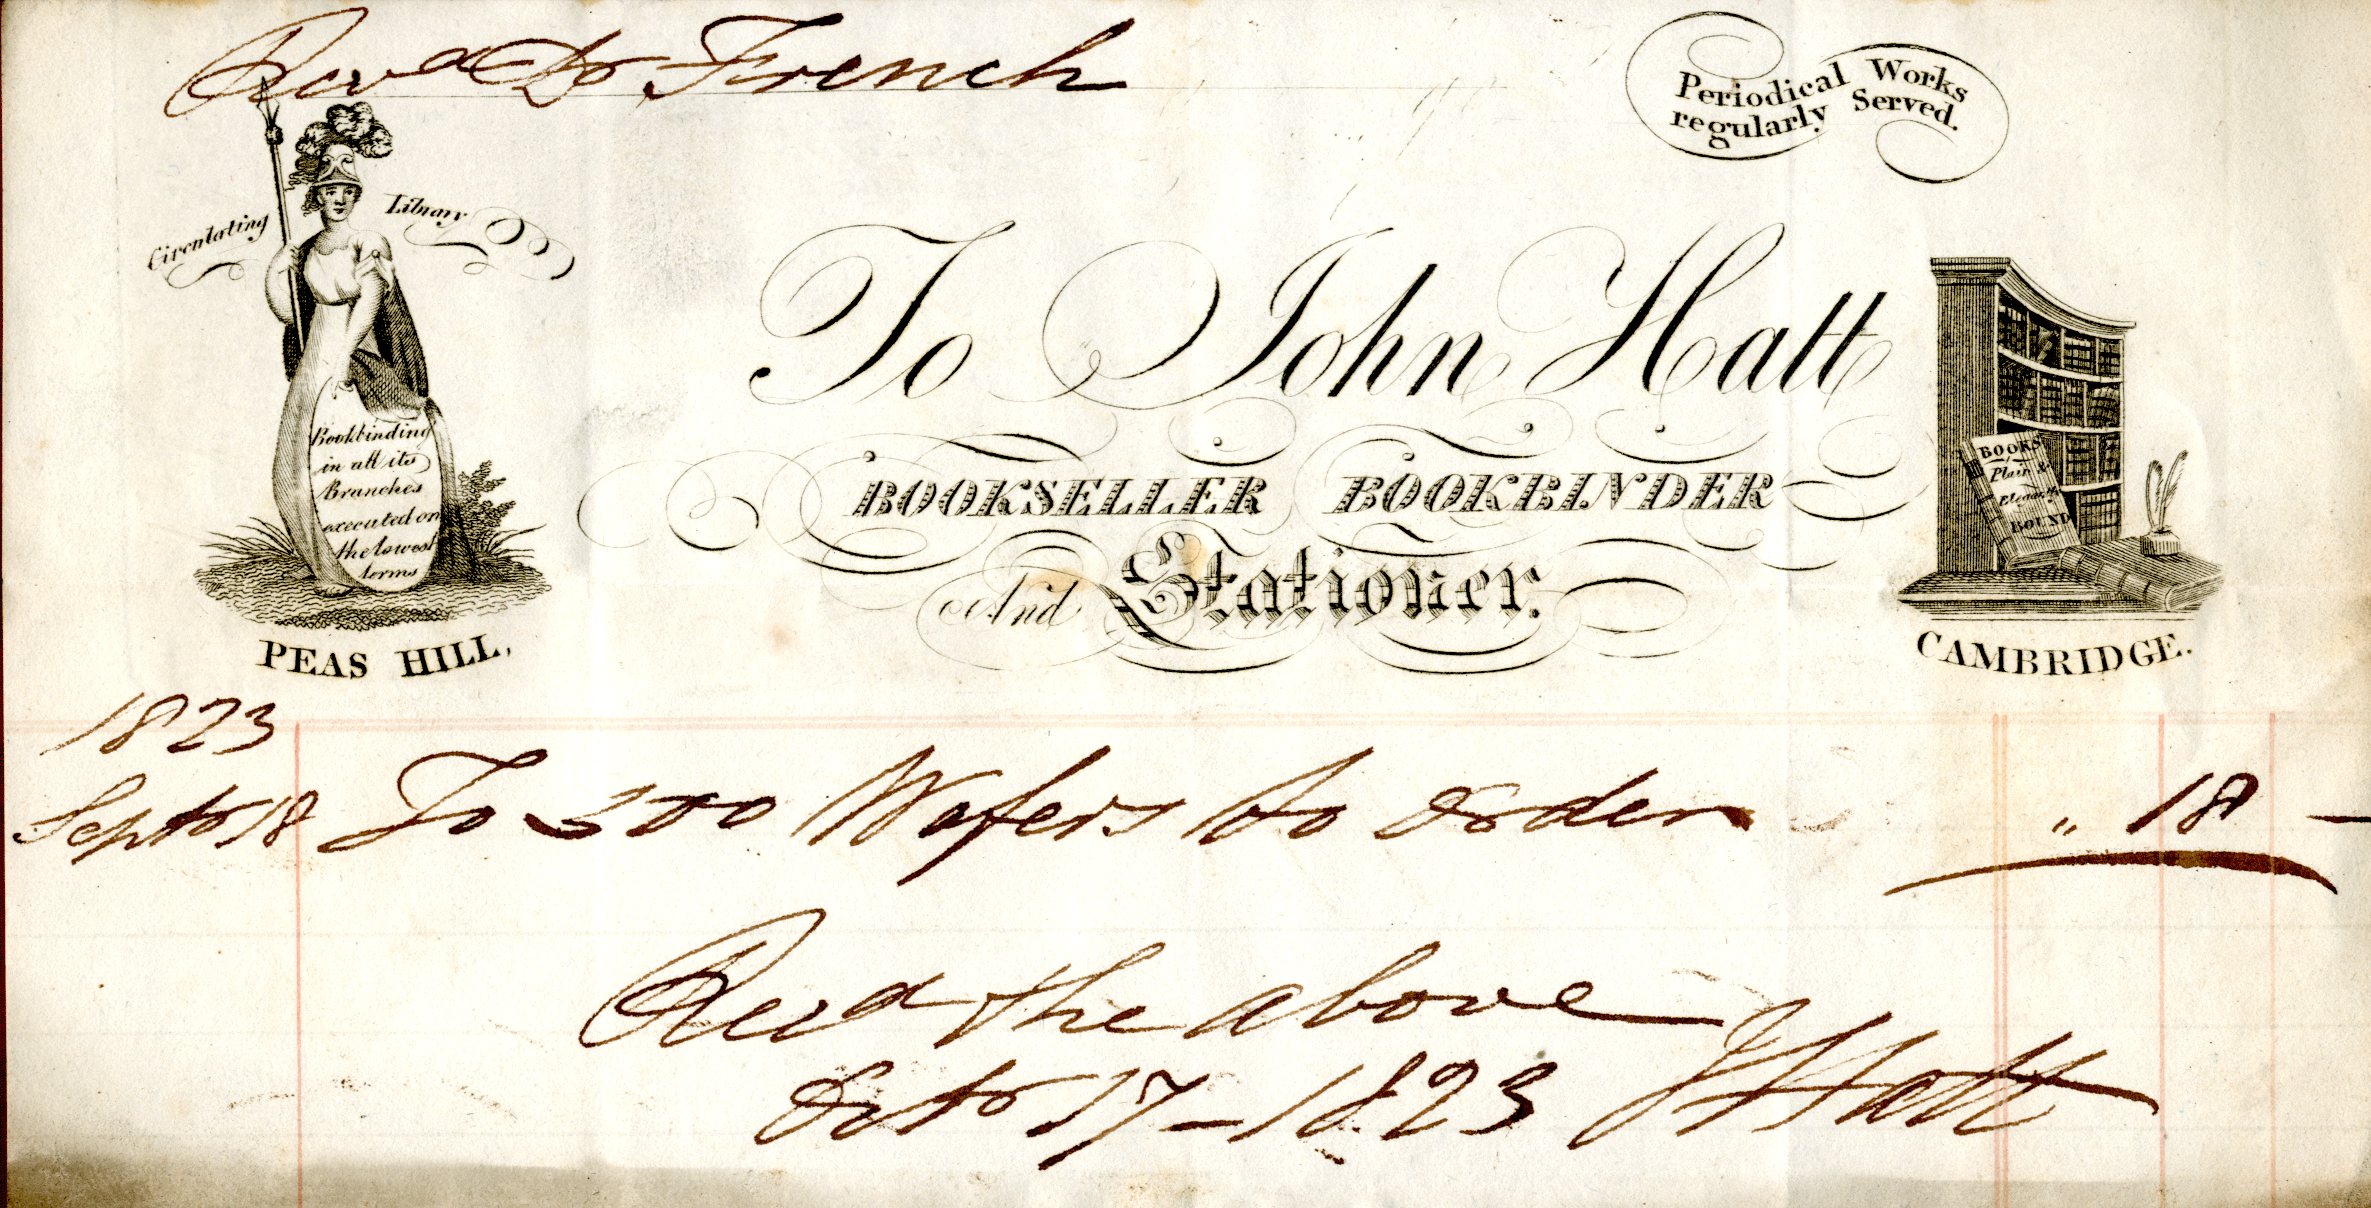 Revd Dr French
Periodical Works
regularly Served.
Circulating Library
To John Hatt
BOOKSELLER BOOKBINDER
And Stationer.
Bookbinding
in all its
Branches
executed on
the lowest
terms
BOOKS
Plain &
Elegantly
BOUND
PEAS HILL,
CAMBRIDGE.
1823
Septr 18 To 500 Wafers to order " 18 —
Recd the above
Octr 17 – 1823 J Hatt